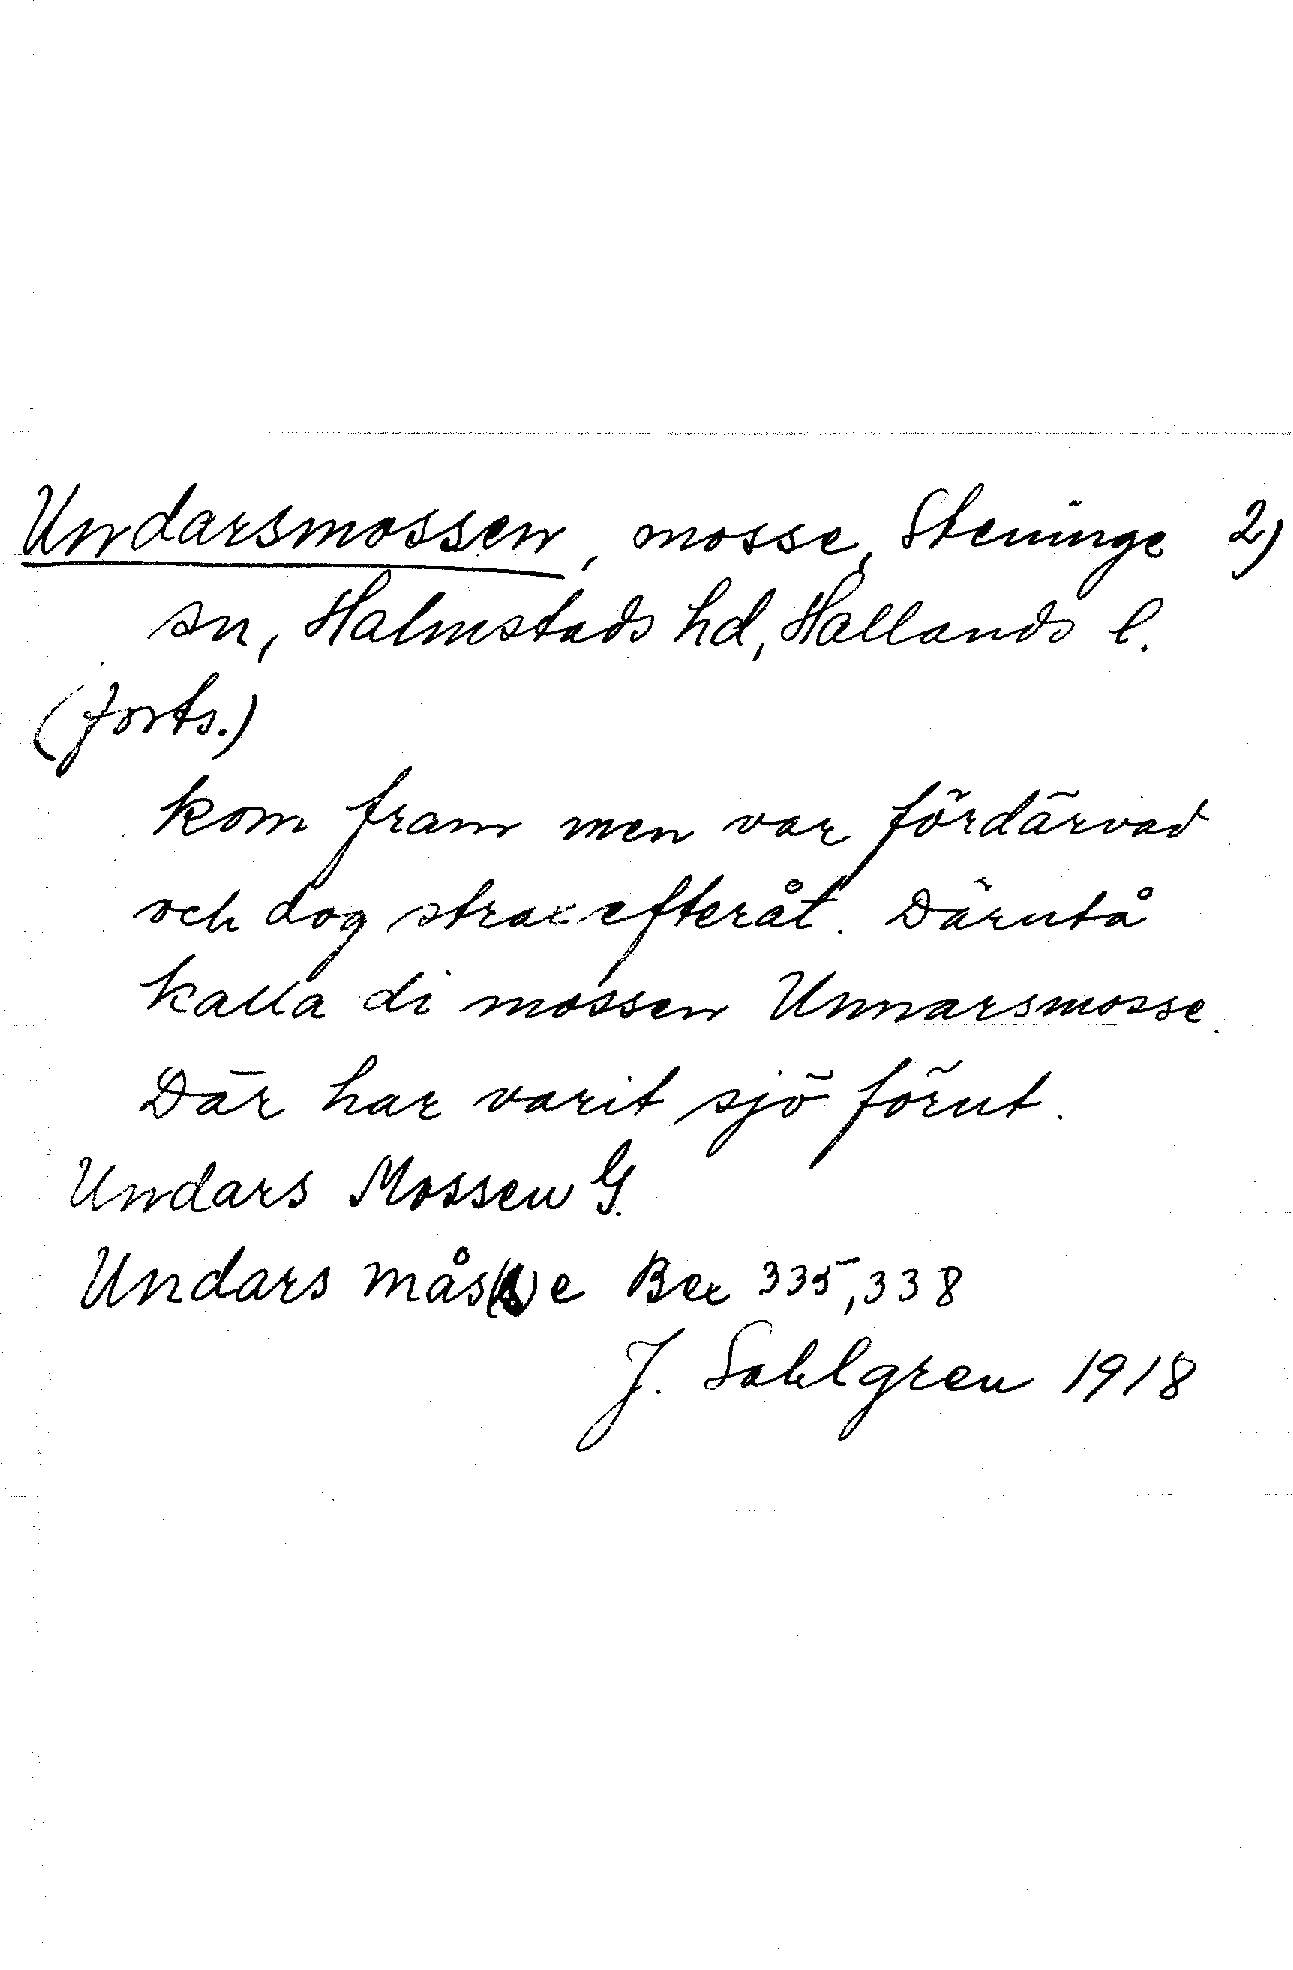 Undarsmossen, mosse, Steninge 2)
sn, Halmstads hd, Hallands l.
(forts.)
kom fram men var fördärvad
och dog strax efteråt. Därutå
kalla di mossen Unnarsmosse.
Där har varit sjö förut.
Undars Mossen G.
Undars mås(s)e Bex 335,338
J. Sahlgren 1918